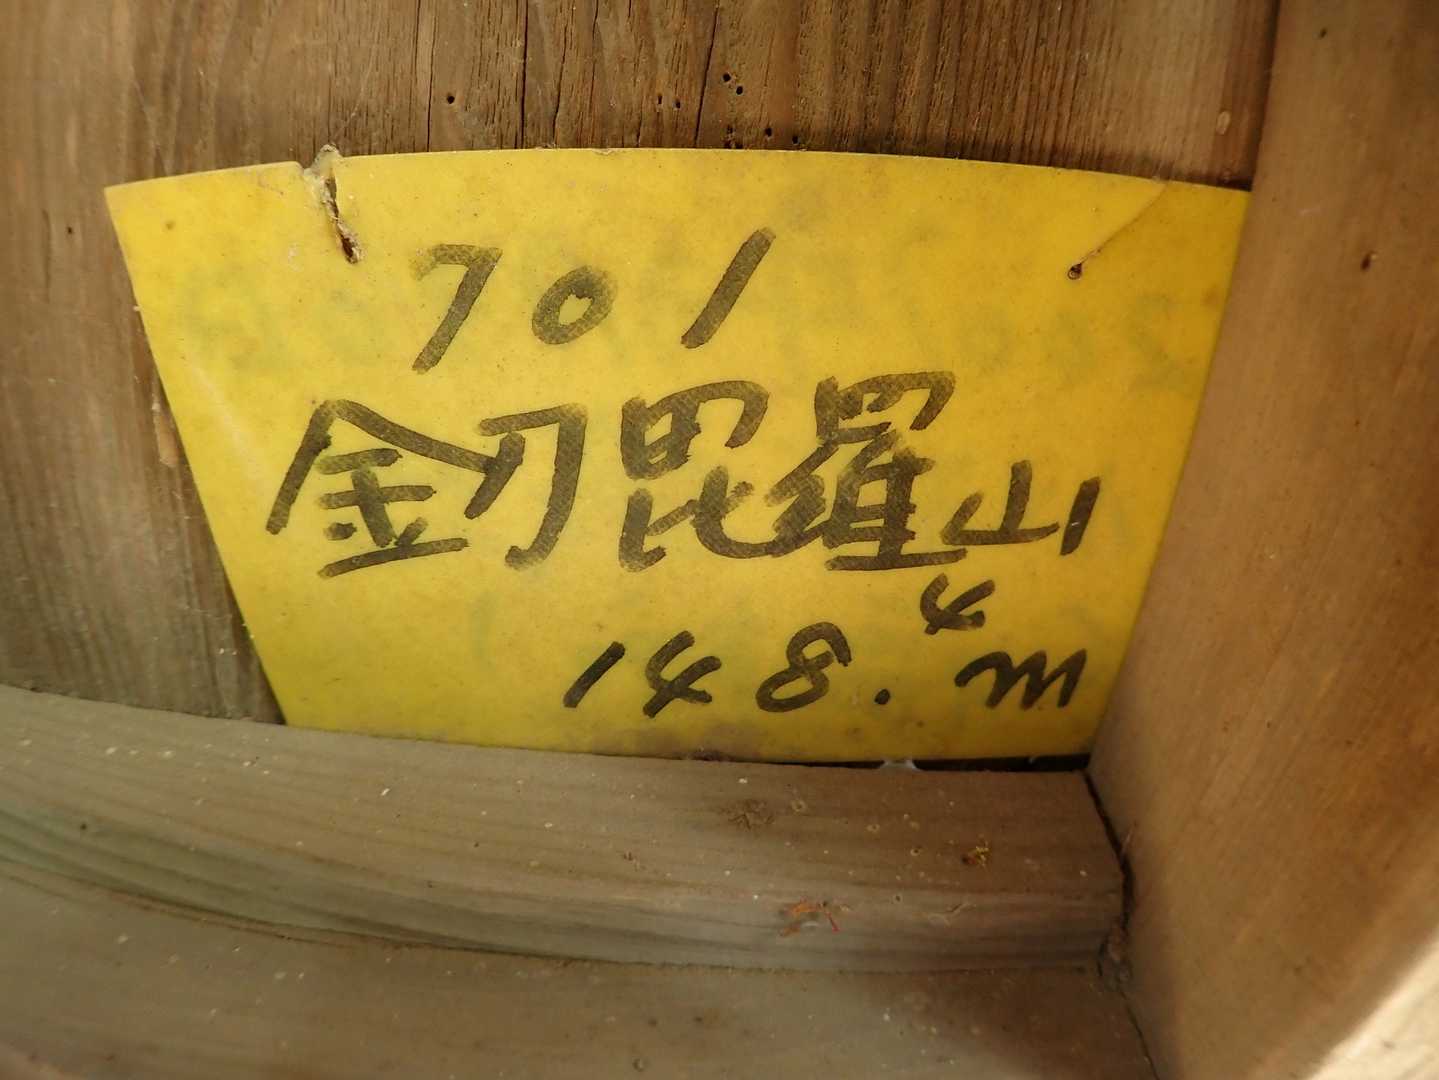 701
釖毘羅山
148.4m